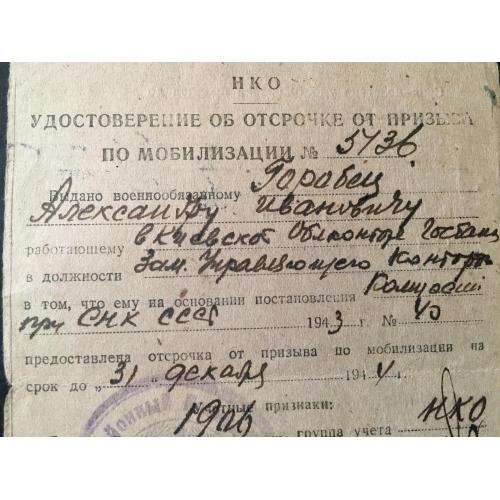 НКО
УДОСТОВЕРЕНИЕ ОБ ОТСРОЧКЕ ОТ ПРИЗЫВА
ПО МОБИЛИЗАЦИИ № 5736
Выдано военнообязанному Горобец
Александру Ивановичу
работающему в Киевской Облконторе Госбанка
в должности Зам. Управляющего Конторы
в том, что ему на основании постановления Комиссии
при СНК СССР 1943 г. №
предоставлена отсрочка от призыва по мобилизации на
срок до „31 декабря 1944 г.
Учетные признаки:
1906 группа учета НКО